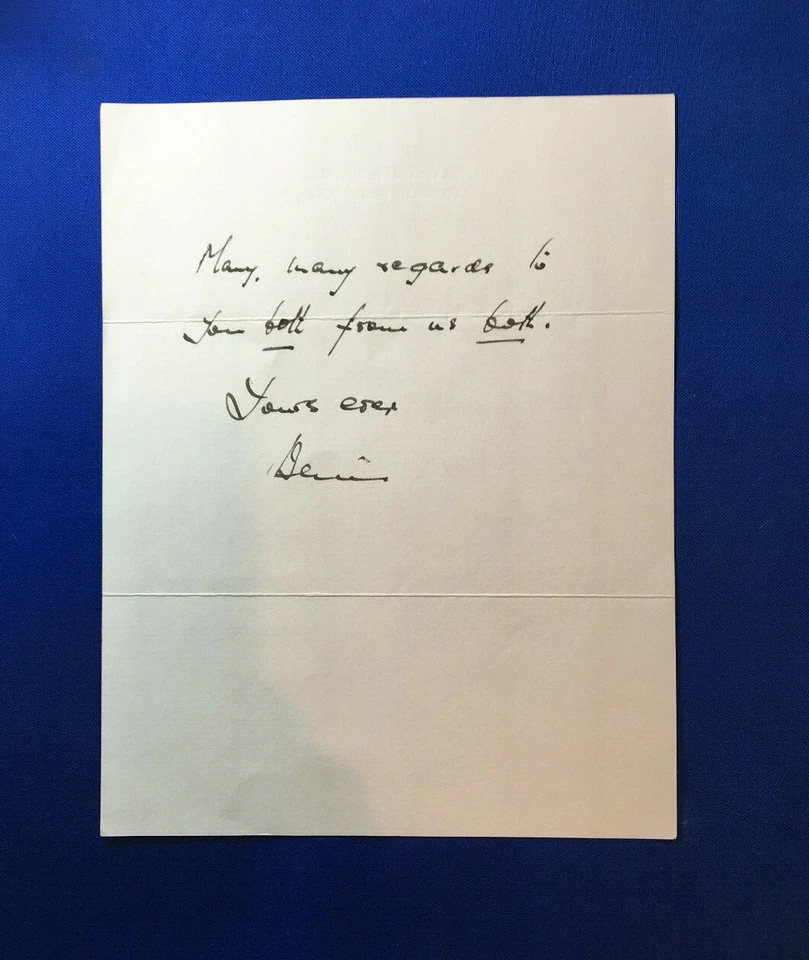 Many, many regards to
you both from us both.
Yours ever
Denis